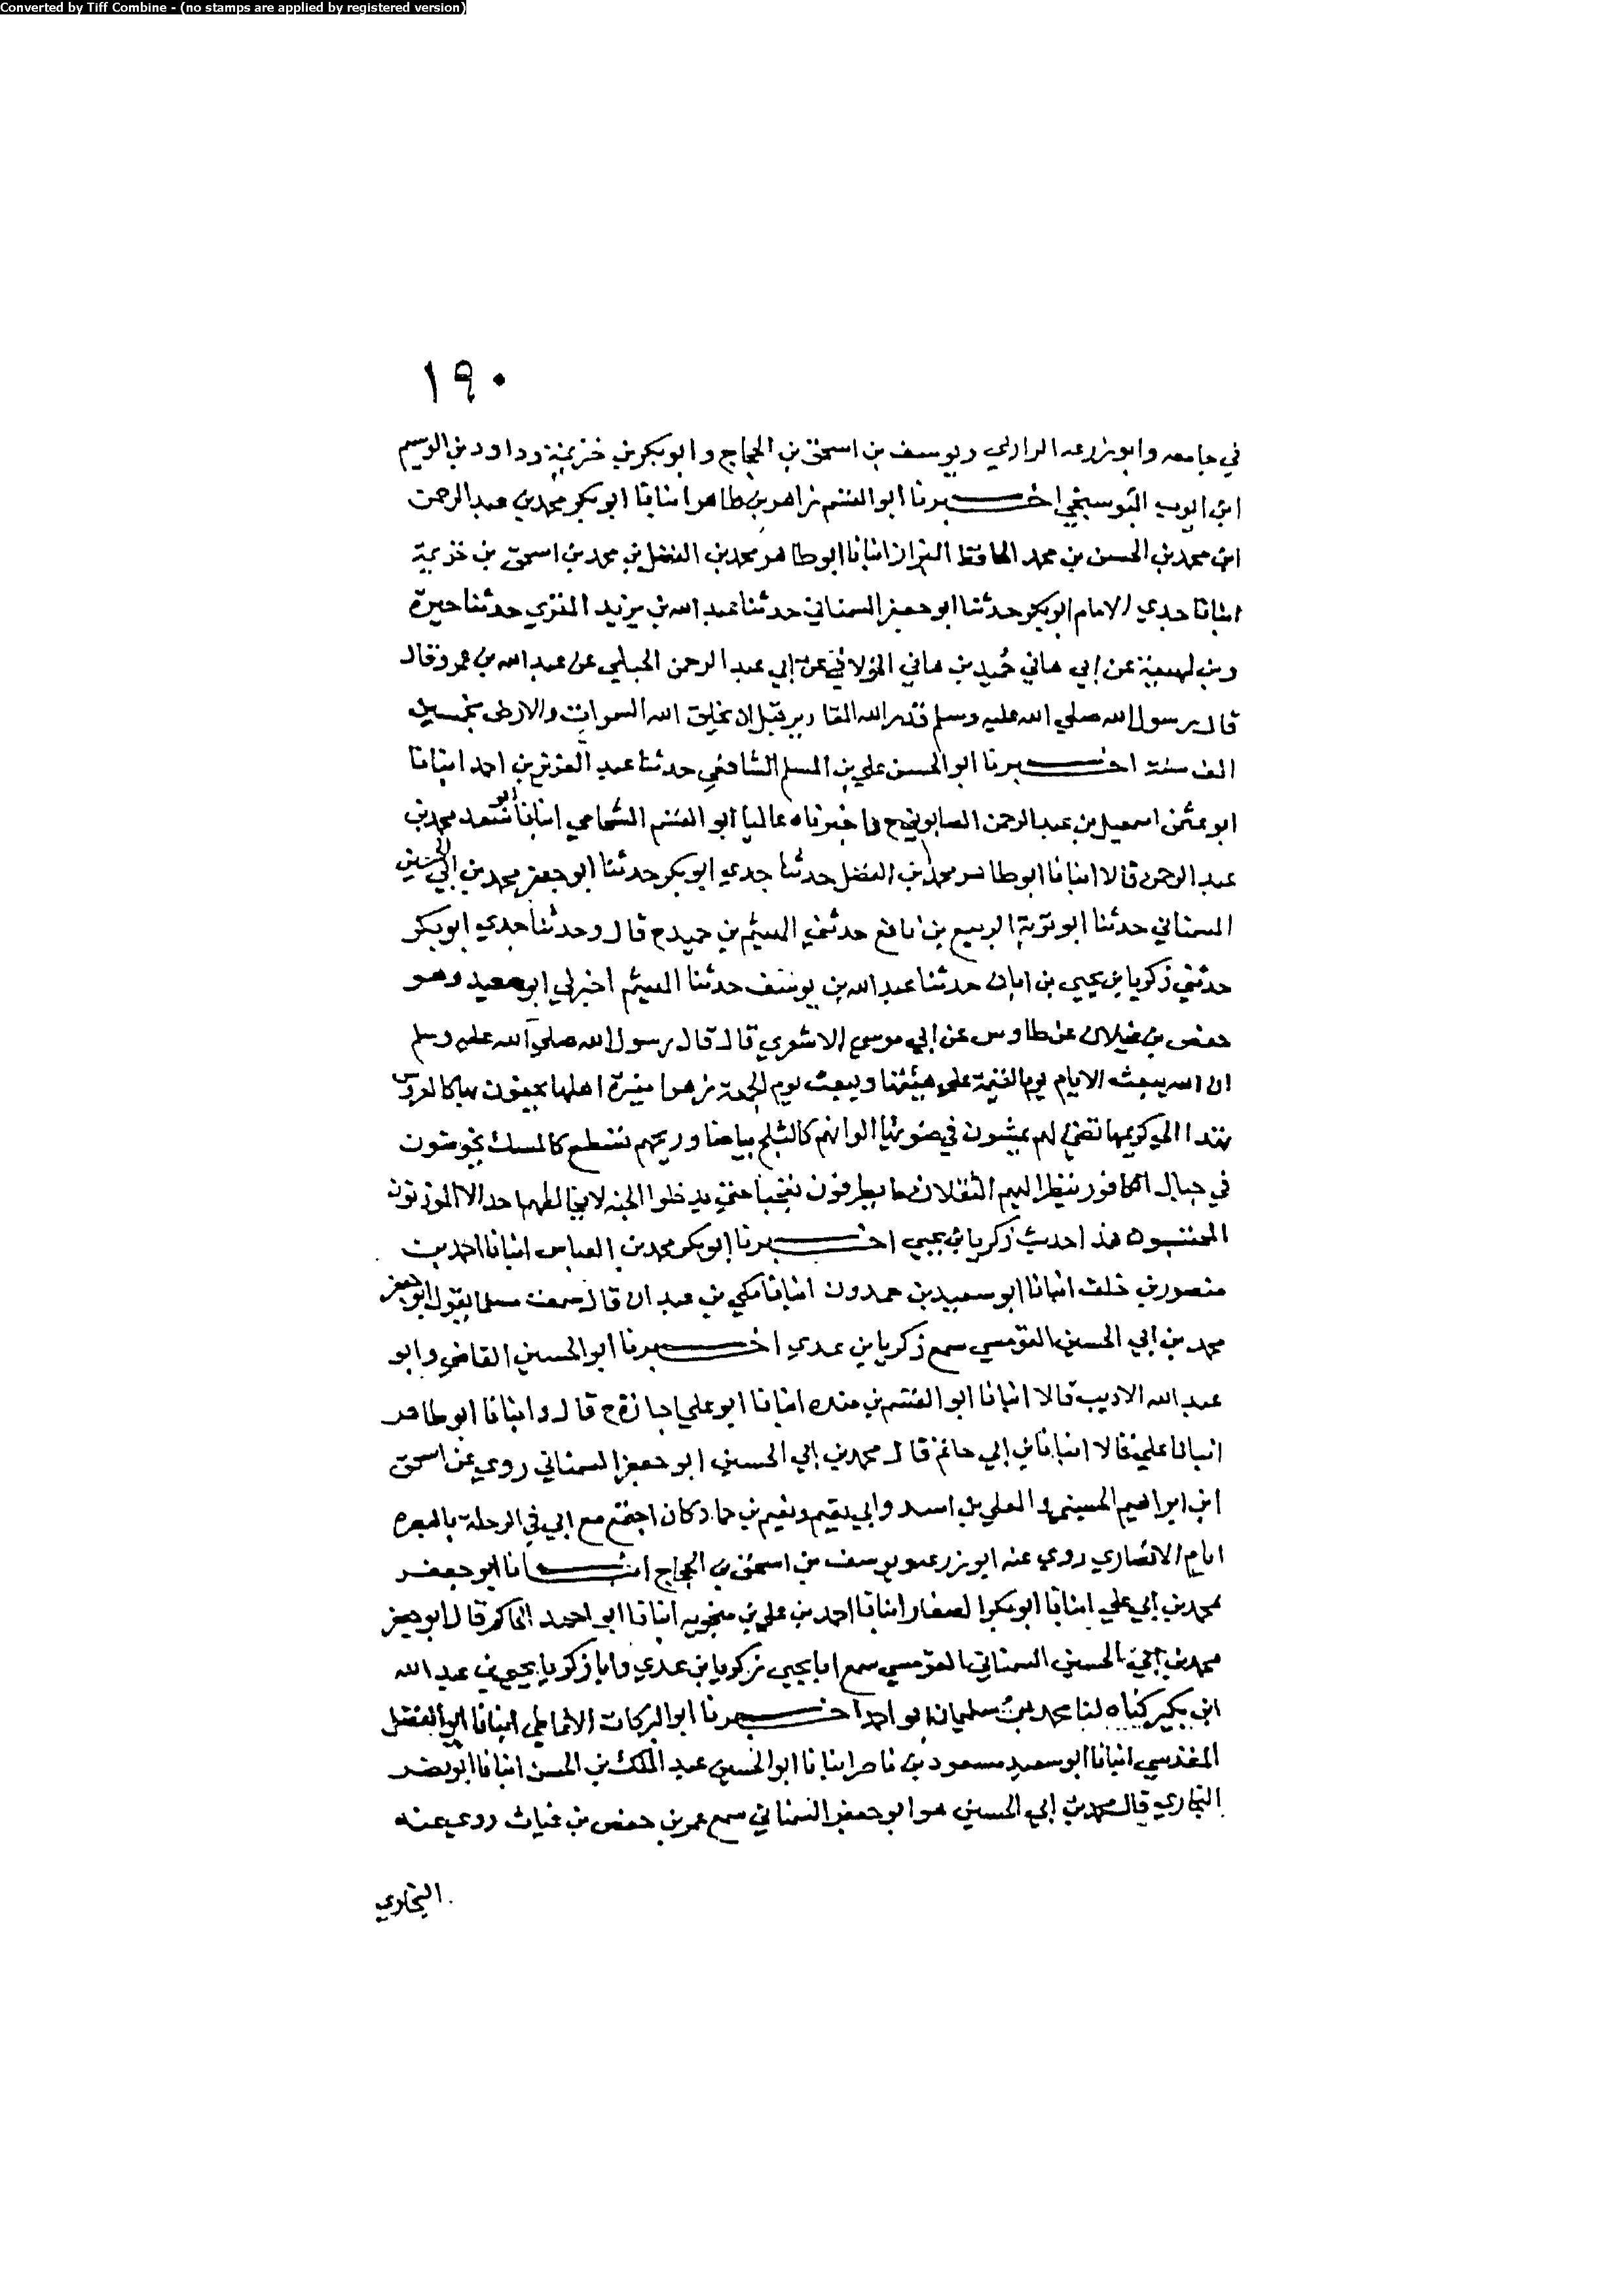 Converted by Tiff Combine - (no stamps are applied by registered version)
١٩٠
في جامعه وابو زرعه الرازي ويوسف بن اسحق بن الحجاج وابو بكر بن خزيمة وداود بن الوسيم
ابن ايوب البوسنجي اخبرنا ابو القسم زاهر بن طاهر انبانا ابو بكر محمد بن عبد الرحمن
ابن محمد بن الحسن بن محمد الحافظ البزاز انبانا ابو طاهر محمد بن الفضل بن محمد بن اسحق بن خزيمة
انبانا جدي الامام ابو بكر حدثنا ابو جعفر السمناني حدثنا عبد الله بن يزيد المقري حدثنا حيوة
وبن لهيعة عن ابي هاني حُميد بن هاني الخولاني عن ابي عبد الرحمن الحبلي عن عبد الله بن عمرو قال
قال رسول الله صلي الله عليه وسلم قدر الله المقادير قبل ان يخلق الله السموات والارض بخمسين
الف سنة اخبرنا ابو الحسن علي بن المسلم الشافعي حدثنا عبد العزيز بن احمد انبانا
ابو عثمن اسمعيل بن عبد الرحمن الصابوني ح واخبرناه عاليا ابو القسم الشحامي انبانا ابو سعد محمد بن
عبد الرحمن قالا انبانا ابو طاهر محمد بن الفضل حدثنا جدي ابو بكر حدثنا ابو جعفر محمد بن ابي الحسين
السمناني حدثنا ابو توبة الربيع بن نافع حدثني الهيثم بن حميد ح قال وحدثنا جدي ابو بكر
حدثني زكريا بن يحيى بن ابان حدثنا عبد الله بن يوسف حدثنا الهيثم اخبرني ابو معيد وهو
حفص بن غيلان عن طاوس عن ابي موسي الاشعري قال قال رسول الله صلي الله عليه وسلم
ان الله يبعث الايام يوم القيمة علي هيئتها ويبعث يوم الجمعة زهرا منيرة اهلها يحفون بها كالعروس
تهدا الي كريمها تضئ لهم يمشون في ضوئها الوانهم كالثلج بياضا وريحهم تسطع كالمسك يخوضون
في جبال الكافور ينظر اليهم الثقلان ما يطرفون تعجبا حتي يدخلوا الجنة لا يخالطهم احد الا الموذنون
المحتسبون هذا حديث زكريا بن يحيي اخبرنا ابو بكر محمد بن العباس انبانا احمد بن
منصور بن خلف انبانا ابو سعيد بن حمدون انبانا مكي بن عبدان قال سمعت مسلما يقول ابو جعفر
محمد بن ابي الحسين القومسي سمع زكريا بن عدي اخبرنا ابو الحسين القاضي وابو
عبد الله الاديب قالا انبانا ابو القسم بن منده انبانا ابو علي اجازة ح قال وانبانا ابو طاهر
انبانا علي قالا انبانا بن ابي حاتم قال محمد بن ابي الحسين ابو جعفر السمناني روي عن اسحق
ابن ابراهيم الحسيني والمعلي بن اسد وابي نعيم ونعيم بن حماد كان اجتمع مع ابي في الرحلة بالبصره
ايام الانصاري روي عنه ابو زرعه ويوسف بن اسحق بن الحجاج انبانا ابو جعفر
محمد بن ابي علي انبانا ابو بكر الصفار انبانا احمد بن علي بن منجويه انبانا ابو احمد الحاكم قال ابو جعفر
محمد بن ابي الحسين السمناني القومسي سمع ابا يحيي زكريا بن عدي وابا زكريا يحيي بن عبد الله
ابن بكير كناه لنا محمد بن سليمان ابو احمد اخبرنا ابو البركات الانماطي انبانا ابو الفضل
المقدسي انبانا ابو سعيد مسعود بن ناصر انبانا ابو الحسين عبد الملك بن الحسن انبانا ابو نصر
البخاري قال محمد بن ابي الحسين هو ابو جعفر السمناني سمع عمر بن حفص بن غياث روي عنه
البخاري